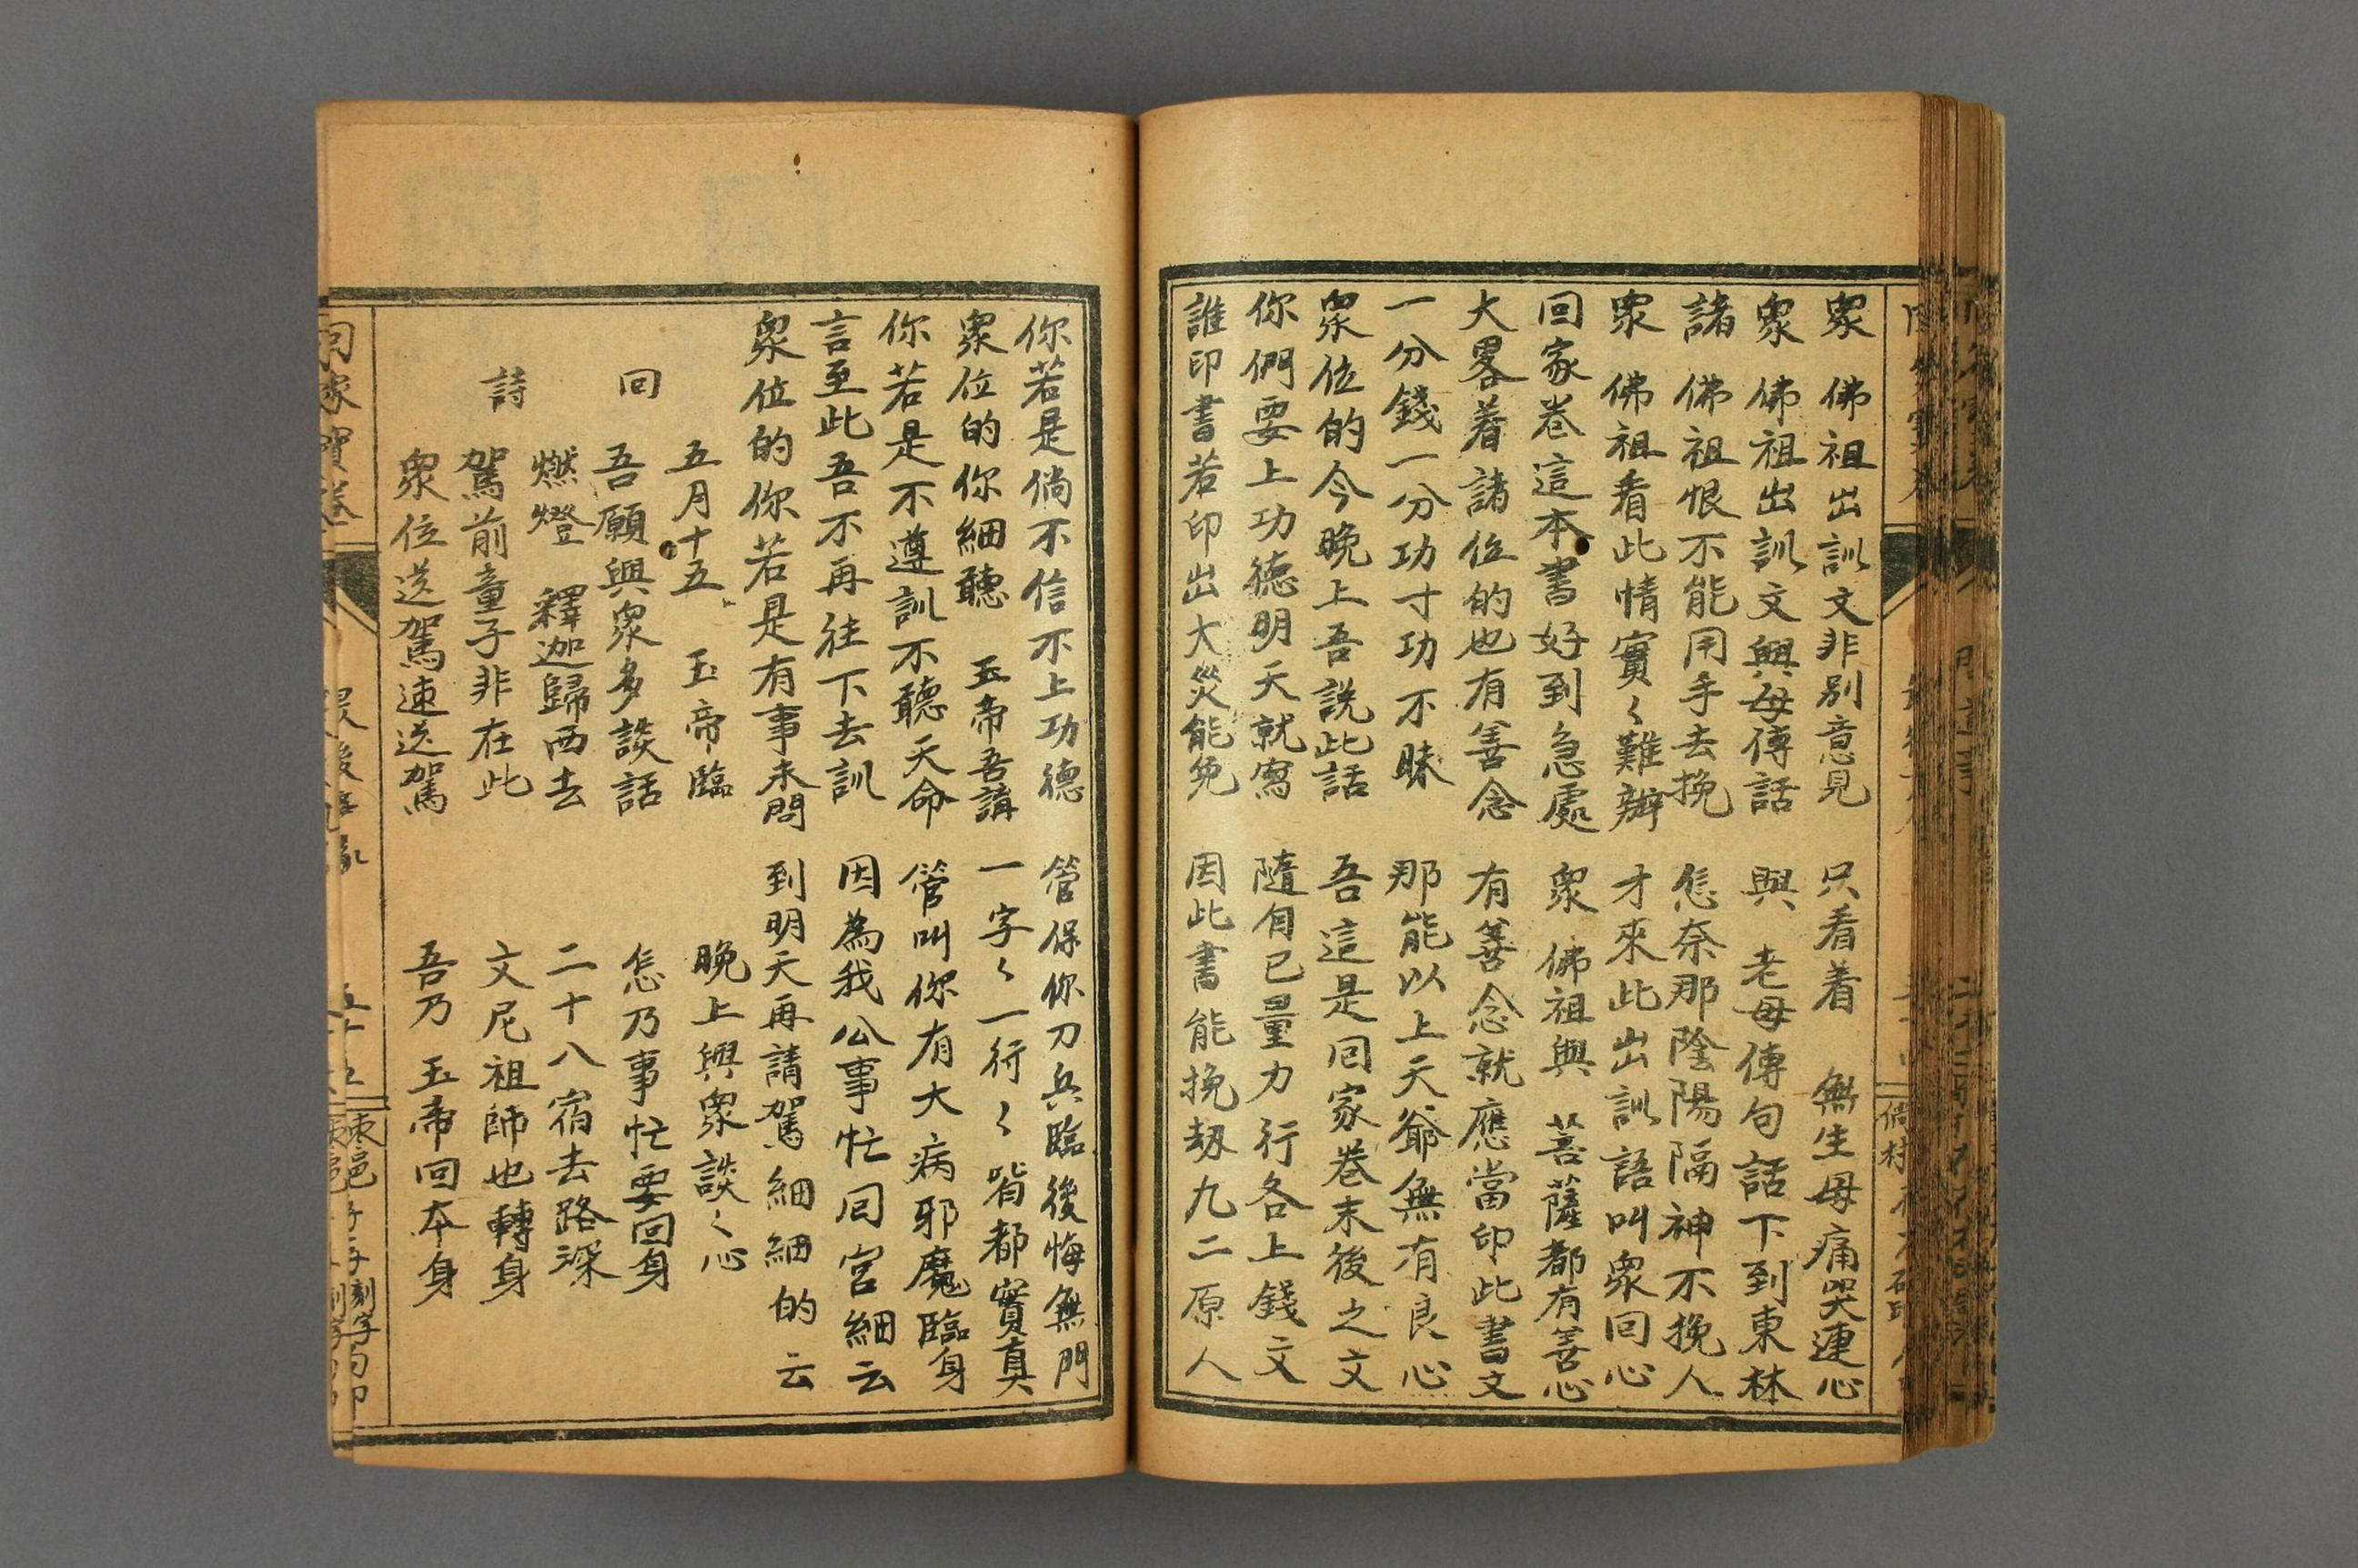 眾　佛祖出訓文非別意見　只看着　無生母痛哭連心
眾　佛祖出訓文與母傳話　與　老母傳句話下到東林
諸　佛祖恨不能用手去挽　怎奈那陰陽隔神不挽人
眾　佛祖看此情實〻難辦　才來此出訓語叫眾回心
回家卷這本書好到急處　眾　佛祖與　菩薩都有善心
大畧着諸位的也有善念　有善念就應當印此書文
一分錢一分功寸功不昧　那能以上天爺無有良心
眾位的今晚上吾説此話　吾這是回家卷末後之文
你們要上功德明天就寫　隨自己量力行各上錢文
誰印書若印出大災能免　因此書能挽劫九二原人
你若是倘不信不上功德　管保你刀兵臨後悔無門
眾位的你細聽　玉帝吾講　一字〻一行〻皆都實真
你若是不遵訓不聽天命　管叫你有大病邪魔臨身
言至此吾不再往下去訓　因為我公事忙回宮細云
眾位的你若是有事未問　到明天再請駕細細的云
五月十五　玉帝臨　晚上與眾談〻心
回　吾願與眾多談話　怎乃事忙要回身
燃燈　釋迦歸西去　二十八宿去路深
詩　駕前童子非在此　文尼祖師也轉身
眾位送駕速送駕　吾乃　玉帝回本身
回家寶卷　五十五　東邑　刻字